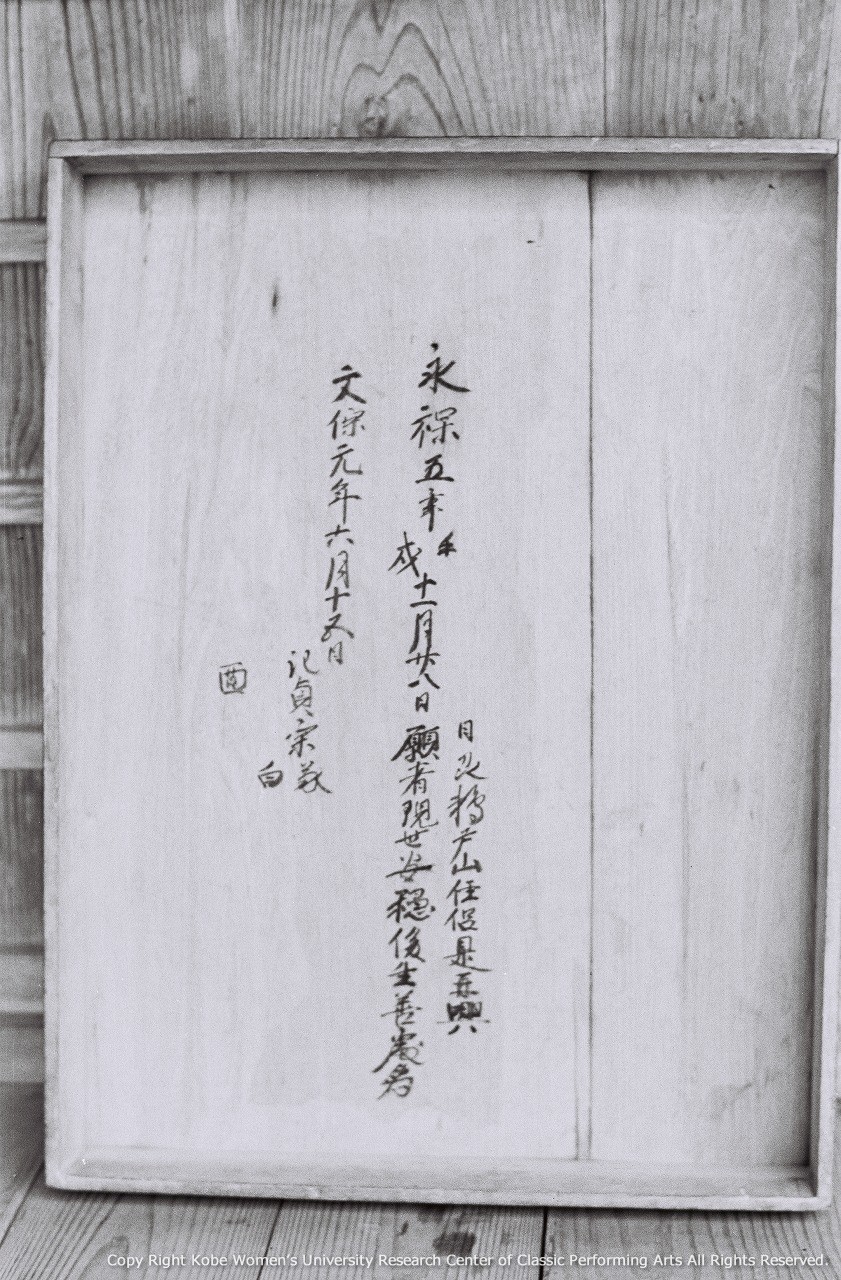 永禄五年壬戌十一月廿八日 願者現世安穏後生善處為
日次 戸山住侶是並興
文保元年六月十五日
記貞宗義
白
Copy Right Kobe Women's University Research Center of Classic Performing Arts All Rights Reserved.